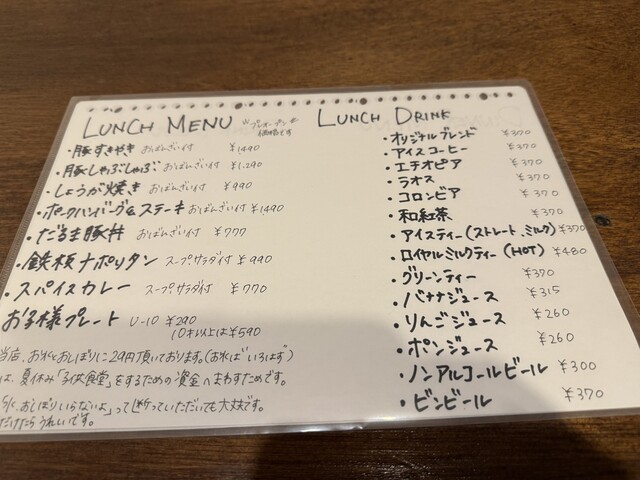 LUNCH MENU
"プレオープン"
価格です
・豚すきやき おばんざい付 ¥1490
・豚しゃぶしゃぶ おばんざい付 ¥1,290
・しょうが焼き おばんざい付 ¥990
・ポークハンバーグ&ステーキ おばんざい付 ¥1490
・だるま豚丼 おばんざい付 ¥777
・鉄板ナポリタン スープサラダ付 ¥990
・スパイスカレー スープサラダ付 ¥770
お子様プレート U-10 ¥290
10才以上は¥590
当店、お水とおしぼりに29円頂いております。(お水は"いろはす")
は、夏休み「子供食堂」をするための資金へまわすためです。
おしぼりいらないよ」って断っていただいても大丈夫です。
だけたらうれしいです。
LUNCH DRINK
・オリジナルブレンド ¥370
・アイスコーヒー ¥370
・エチオピア ¥370
・ラオス ¥370
・コロンビア ¥370
・和紅茶 ¥370
・アイスティー(ストレート、ミルク) ¥370
・ロイヤルミルクティー(HOT) ¥480
・グリーンティー ¥370
・バナナジュース ¥315
・りんごジュース ¥260
・ポンジュース ¥260
・ノンアルコールビール ¥300
・ビンビール ¥370